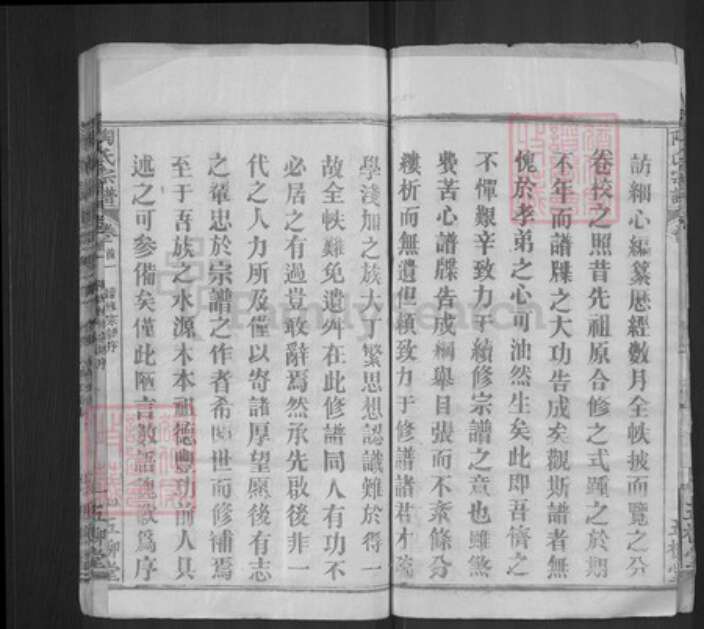 訪細心編纂歷經數月全帙披而覽之分
卷校之照昔先祖原合修之式踵之於期
不年而譜牒之大功告成矣觀斯譜者無
愧於孝弟之心可油然生矣此即吾儕之
不憚艱辛致力于續修宗譜之意也雖煞
費苦心譜牒告成綱舉目張而不紊條分
縷析而無遺但願致力于修譜諸君才疏
學淺加之族大丁繁思想認識難於得一
故全帙難免遺舛在此修譜同人有功不
必居之有過豈敢辭焉然承先啟後非一
代之人力所及僅以寄諸厚望愿後有志
之輩忠於宗譜之作者希隨世而修補焉
至于吾族之水源木本祖德豐功前人具
述之可參備矣僅此陋言數語謹啟為序
陶氏宗譜
卷首一
五柳堂
FamilySearch